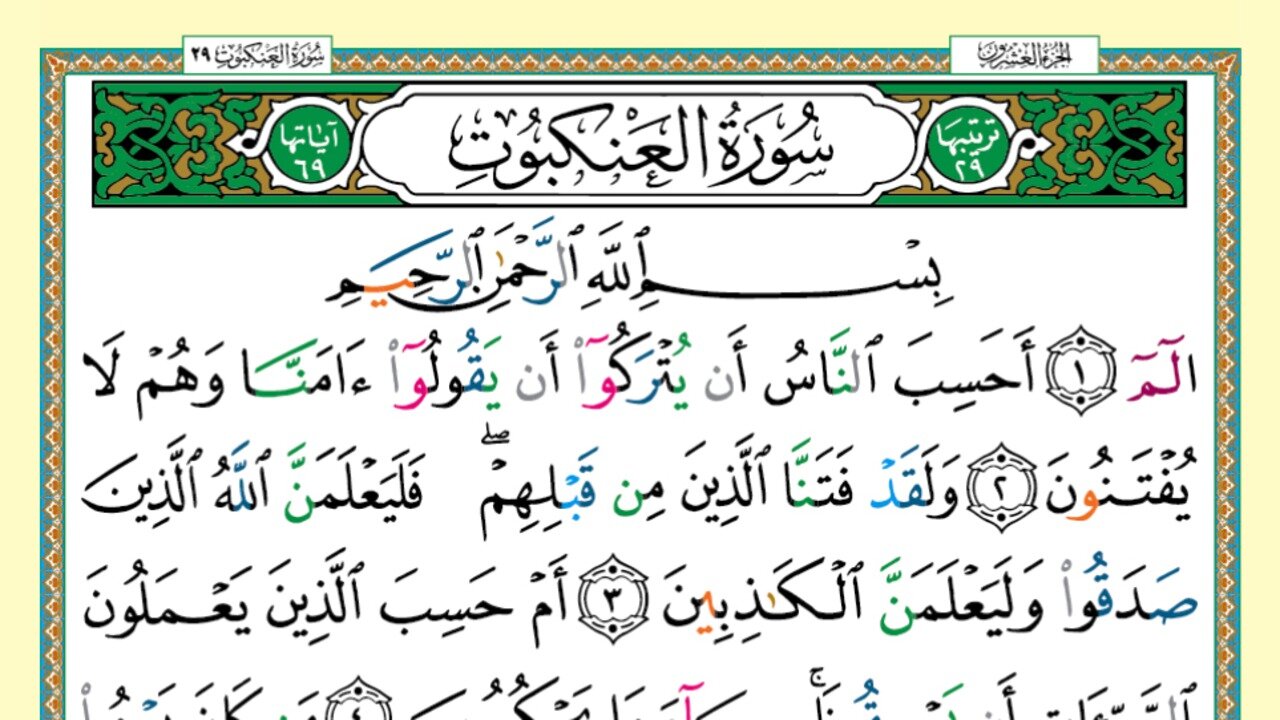 الجزء العشرون
سورة العنكبوت ٢٩
ترتيبها ٢٩
سُورَةُ الْعَنْكَبُوتِ
آياتها ٦٩
بِسْمِ ٱللَّهِ ٱلرَّحْمَٰنِ ٱلرَّحِيمِ
الٓمٓ ١ أَحَسِبَ ٱلنَّاسُ أَن يُتْرَكُوٓا۟ أَن يَقُولُوٓا۟ ءَامَنَّا وَهُمْ لَا
يُفْتَنُونَ ٢ وَلَقَدْ فَتَنَّا ٱلَّذِينَ مِن قَبْلِهِمْ ۖ فَلَيَعْلَمَنَّ ٱللَّهُ ٱلَّذِينَ
صَدَقُوا۟ وَلَيَعْلَمَنَّ ٱلْكَٰذِبِينَ ٣ أَمْ حَسِبَ ٱلَّذِينَ يَعْمَلُونَ